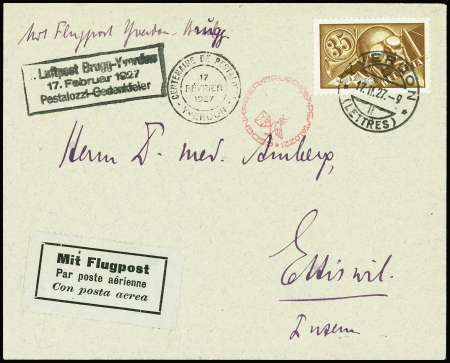 Mit Flugpost Yverdon - Brugg
Luftpost Brugg-Yverdon
17. Februar 1927
Pestalozzi-Gedenkfeier
CENTENAIRE DE PESTALOZZI
17
FÉVRIER
1927
YVERDON
35
YVERDON
17.II.27.-9
(LETTRES)
Herrn Dr. med. Amberg,
Mit Flugpost
Par poste aérienne
Con posta aerea
Ettiswil.
Luzern